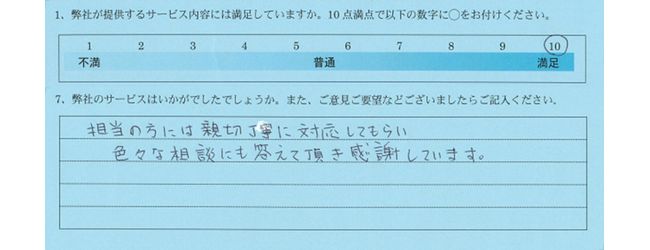 1、弊社が提供するサービス内容には満足していますか。10 点満点で以下の数字に○をお付けください。
1 2 3 4 5 6 7 8 9 10
不満 普通 満足
7、弊社のサービスはいかがでしたでしょうか。また、ご意見ご要望などございましたらご記入ください。
担当の方には親切丁寧に対応してもらい
色々な相談にも答えて頂き感謝しています。